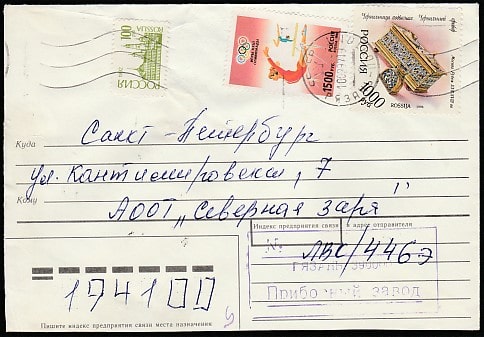 100
РОССИЯ
РОССИЯ
1500
Чернильница подвесная
РОССИЯ
1000
ROSSIJA
Куда
Санкт-Петербург
ул. Кантемировская, 7
Кому
АООТ „Северная заря"
Индекс предприятия связи и адрес отправителя
№ ЛВС/446э
РЯЗАНЬ
Приборный завод
194100
Пишите индекс предприятия связи места назначения